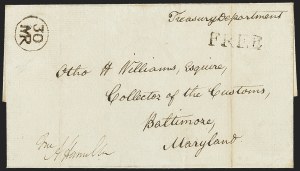 30
MR
Treasury Department
FREE
Otho H Williams, Esquire,
Collector of the Customs,
Baltimore,
Maryland
Free